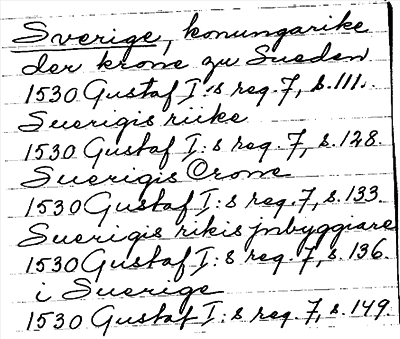 Sverige, konungarike
der krone zu Sueden
1530 Gustaf I:s reg. 7, s. 111.
Suerigis riike
1530 Gustaf I:s reg. 7, s. 128.
Suerigis Crone
1530 Gustaf I:s reg. 7, s. 133.
Suerigis rikis jnbyggiare
1530 Gustaf I:s reg. 7, s. 136.
i Suerige
1530 Gustaf I:s reg. 7, s. 149.